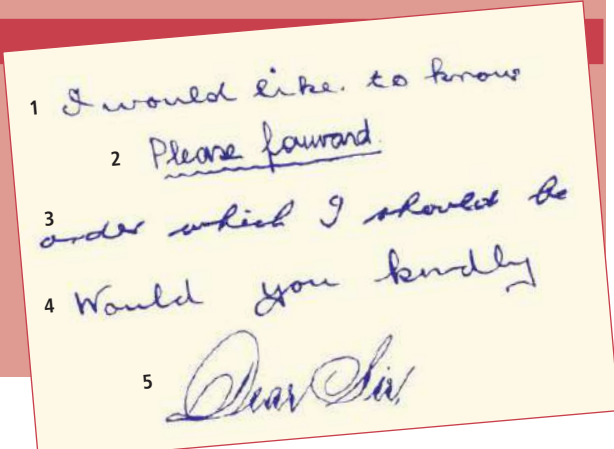 1 I would like to know
2 Please forward.
3 order which I should be
4 Would you kindly
5 Dear Sir,